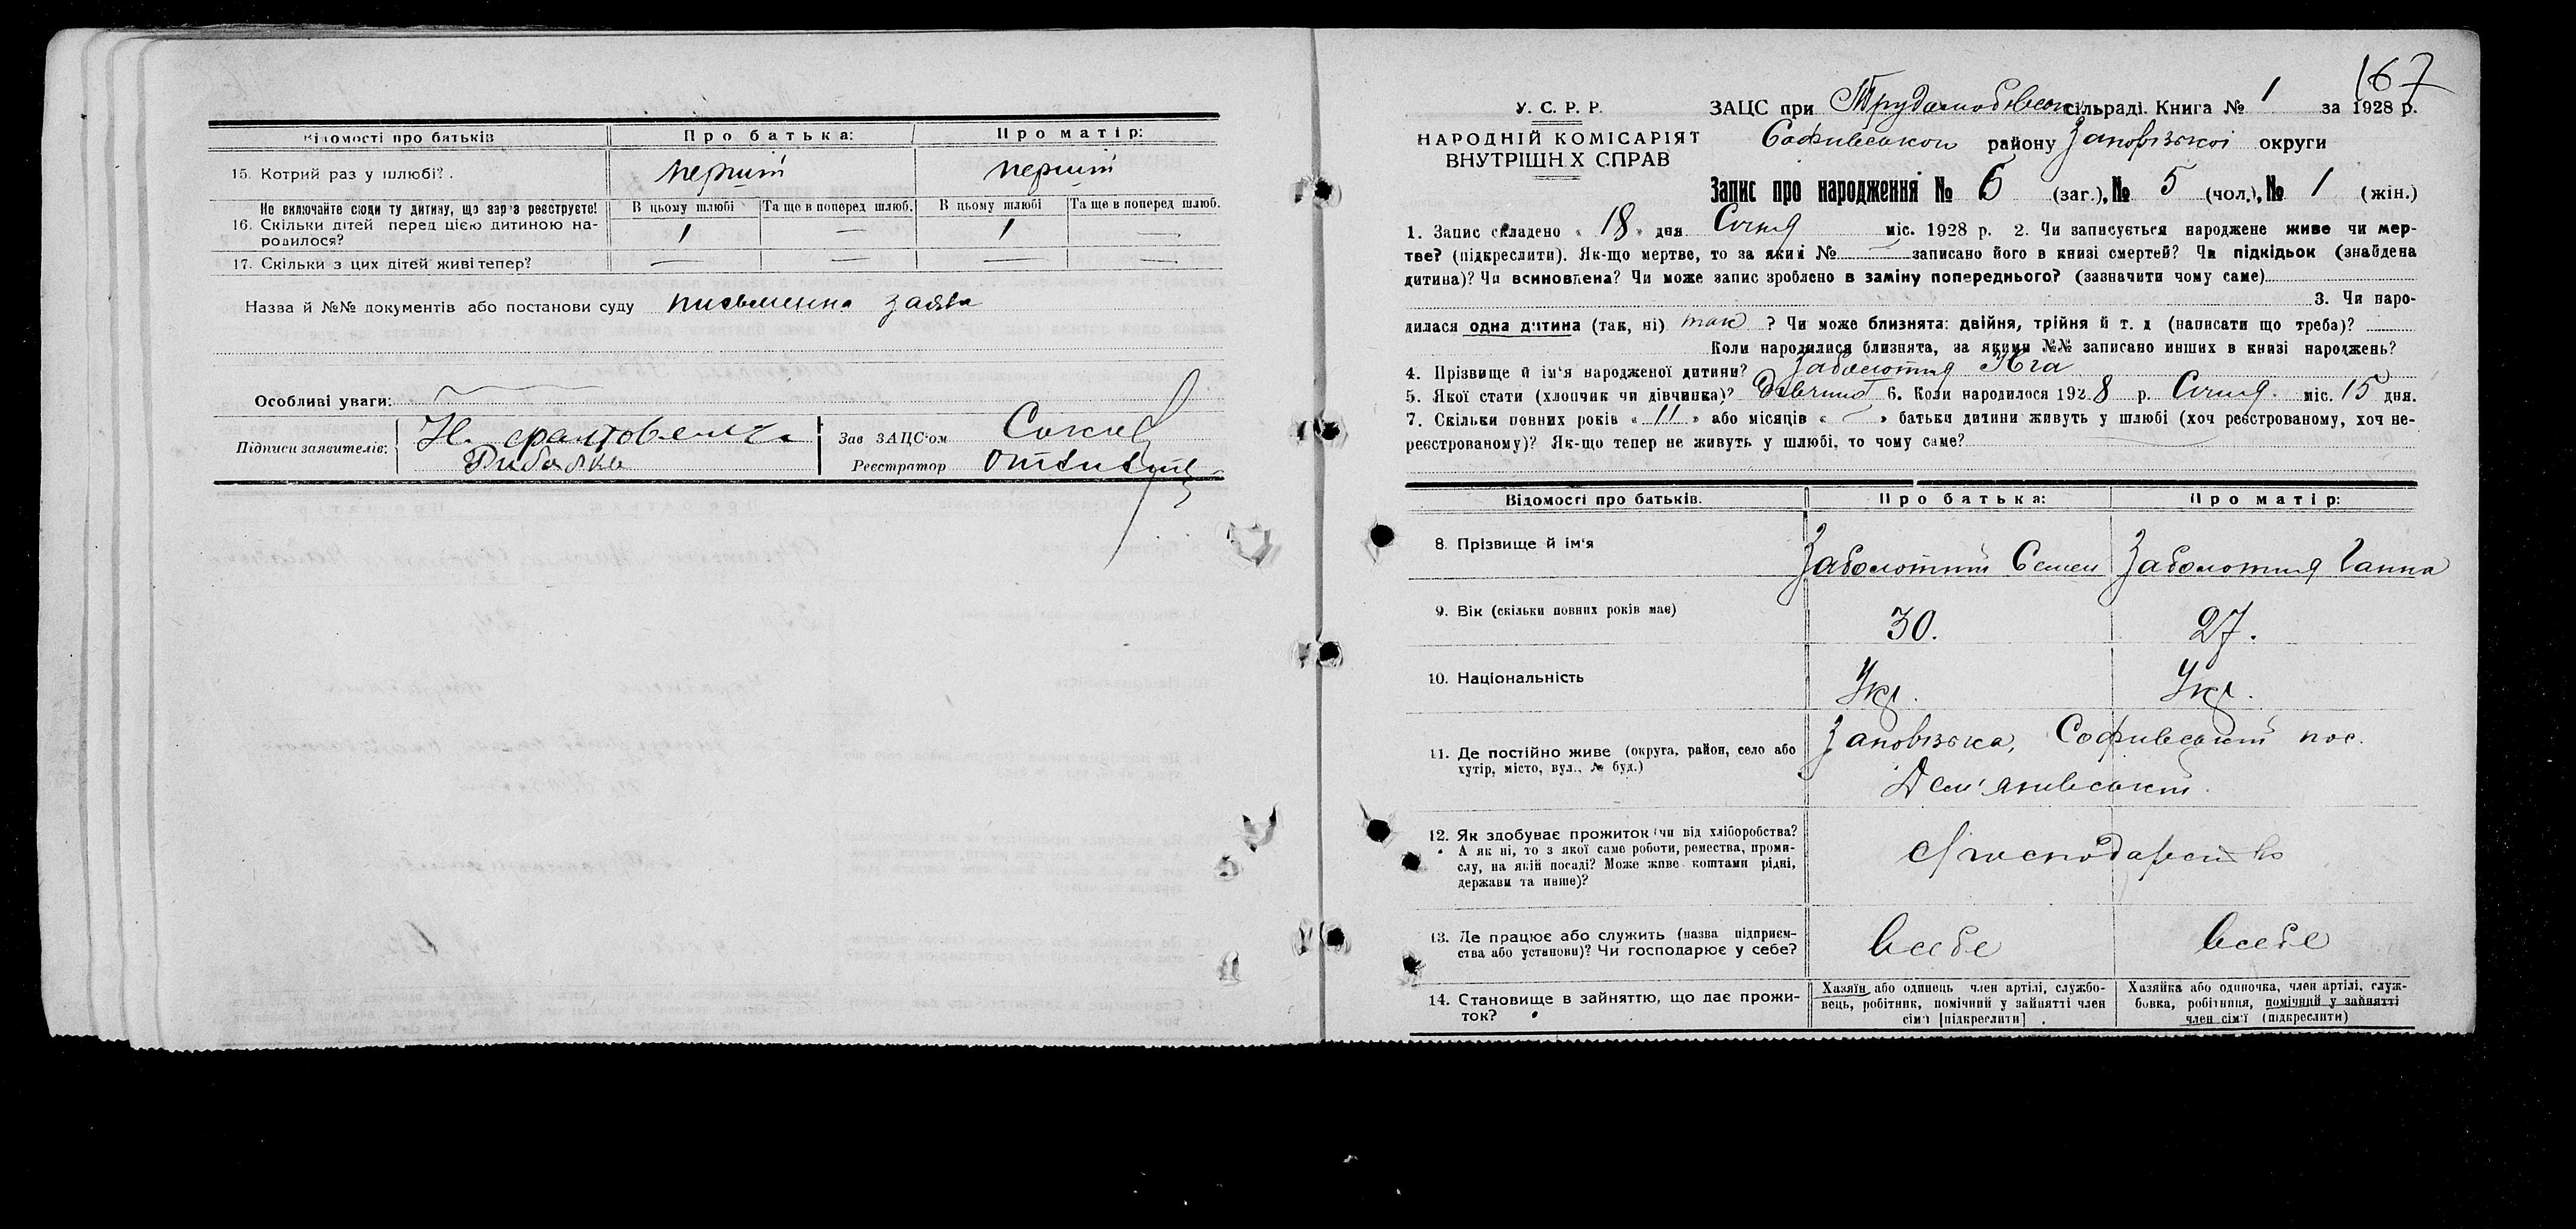 Відомості про батьків
Про батька:
Про матір:
15. Котрий раз у шлюбі?
перший
перший
Не включайте сюди ту дитину, що зараз реєструєте!
В цьому шлюбі
Та ще в поперед. шлюб.
В цьому шлюбі
Та ще в поперед. шлюб.
16. Скільки дітей перед цією дитиною на-
родилося?
1 — 1 —
17. Скільки з цих дітей живі тепер?
— — — —
Назва й №№ документів або постанови суду письменна заява
Особливі уваги:
Підписи заявителів:
Зав ЗАЦС'ом
Реєстратор
167
У. С. Р. Р.
НАРОДНІЙ КОМІСАРІЯТ
ВНУТРІШНІХ СПРАВ
ЗАЦС при сільраді. Книга № 1 за 1928 р.
Софиївської району Запорізької округи
Запис про народження № 6 (заг.), № 5 (чол.), № 1 (жін.)
1. Запис складено « 18 » дня Січня міс. 1928 р. 2. Чи записується народжене живе чи мер-
тве? (підкреслити). Як-що мертве, то за яким № — записано його в книзі смертей? Чи підкідьок (знайдена
дитина)? Чи всиновлена? Чи може запис зроблено в заміну попереднього? (зазначити чому саме)
3. Чи наро-
дилася одна дитина (так, ні) так ? Чи може близнята: двійня, трійня й т. д (написати що треба)?
Коли народилися близнята, за якими №№ записано инших в книзі народжень?
4. Прізвище й ім'я народженої дитини? Заболотня
5. Якої стати (хлопчик чи дівчинка)? 6. Коли народилося 1928 р. Січня міс. 15 дня.
7. Скільки повних років « 11 » або місяців « — » батьки дитини живуть у шлюбі (хоч реєстрованому, хоч не-
реєстрованому)? Як-що тепер не живуть у шлюбі, то чому саме?
Відомості про батьків.
Про батька:
Про матір:
8. Прізвище й ім'я
Заболотний Семен
Заболотня Ганна
9. Вік (скільки повних років має)
30.
27.
10. Національність
Укр.
Укр.
11. Де постійно живе (округа, район, село або
хутір, місто, вул., № буд.)
Запорізька, Софиївський пос.
Дем'янивський
12. Як здобуває прожиток (чи від хліборобства?
А як ні, то з якої саме роботи, ремества, проми-
слу, на якій посаді? Може живе коштами рідні,
держави та инше)?
С/господарство
13. Де працює або служить (назва підприєм-
ства або установи)? Чи господарює у себе?
всебе
всебе
14. Становище в зайняттю, що дає прожи-
ток?
Хазяїн або одинець член артілі, службо-
вець, робітник, помічний у зайнятті член
сім'ї [підкреслити]
Хазяйка або одиночка, член артілі, служ-
бовка, робітниця, помічний у зайнятті
член сім'ї (підкреслити)